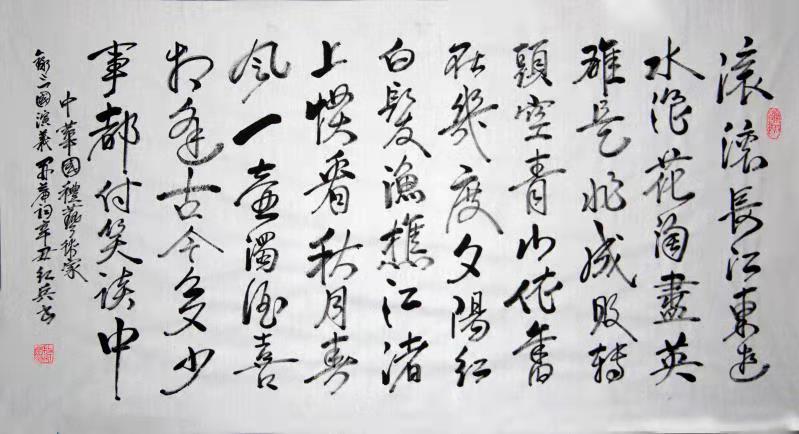 滚滚長江東逝
水浪花淘盡英
雄是非成敗轉
頭空青山依舊
在幾度夕陽紅
白髮漁樵江渚
上慣看秋月春
風一壺濁酒喜
相逢古今多少
事都付笑談中
中華國禮藝術家
錄三國演義開篇詞辛丑紅兵書